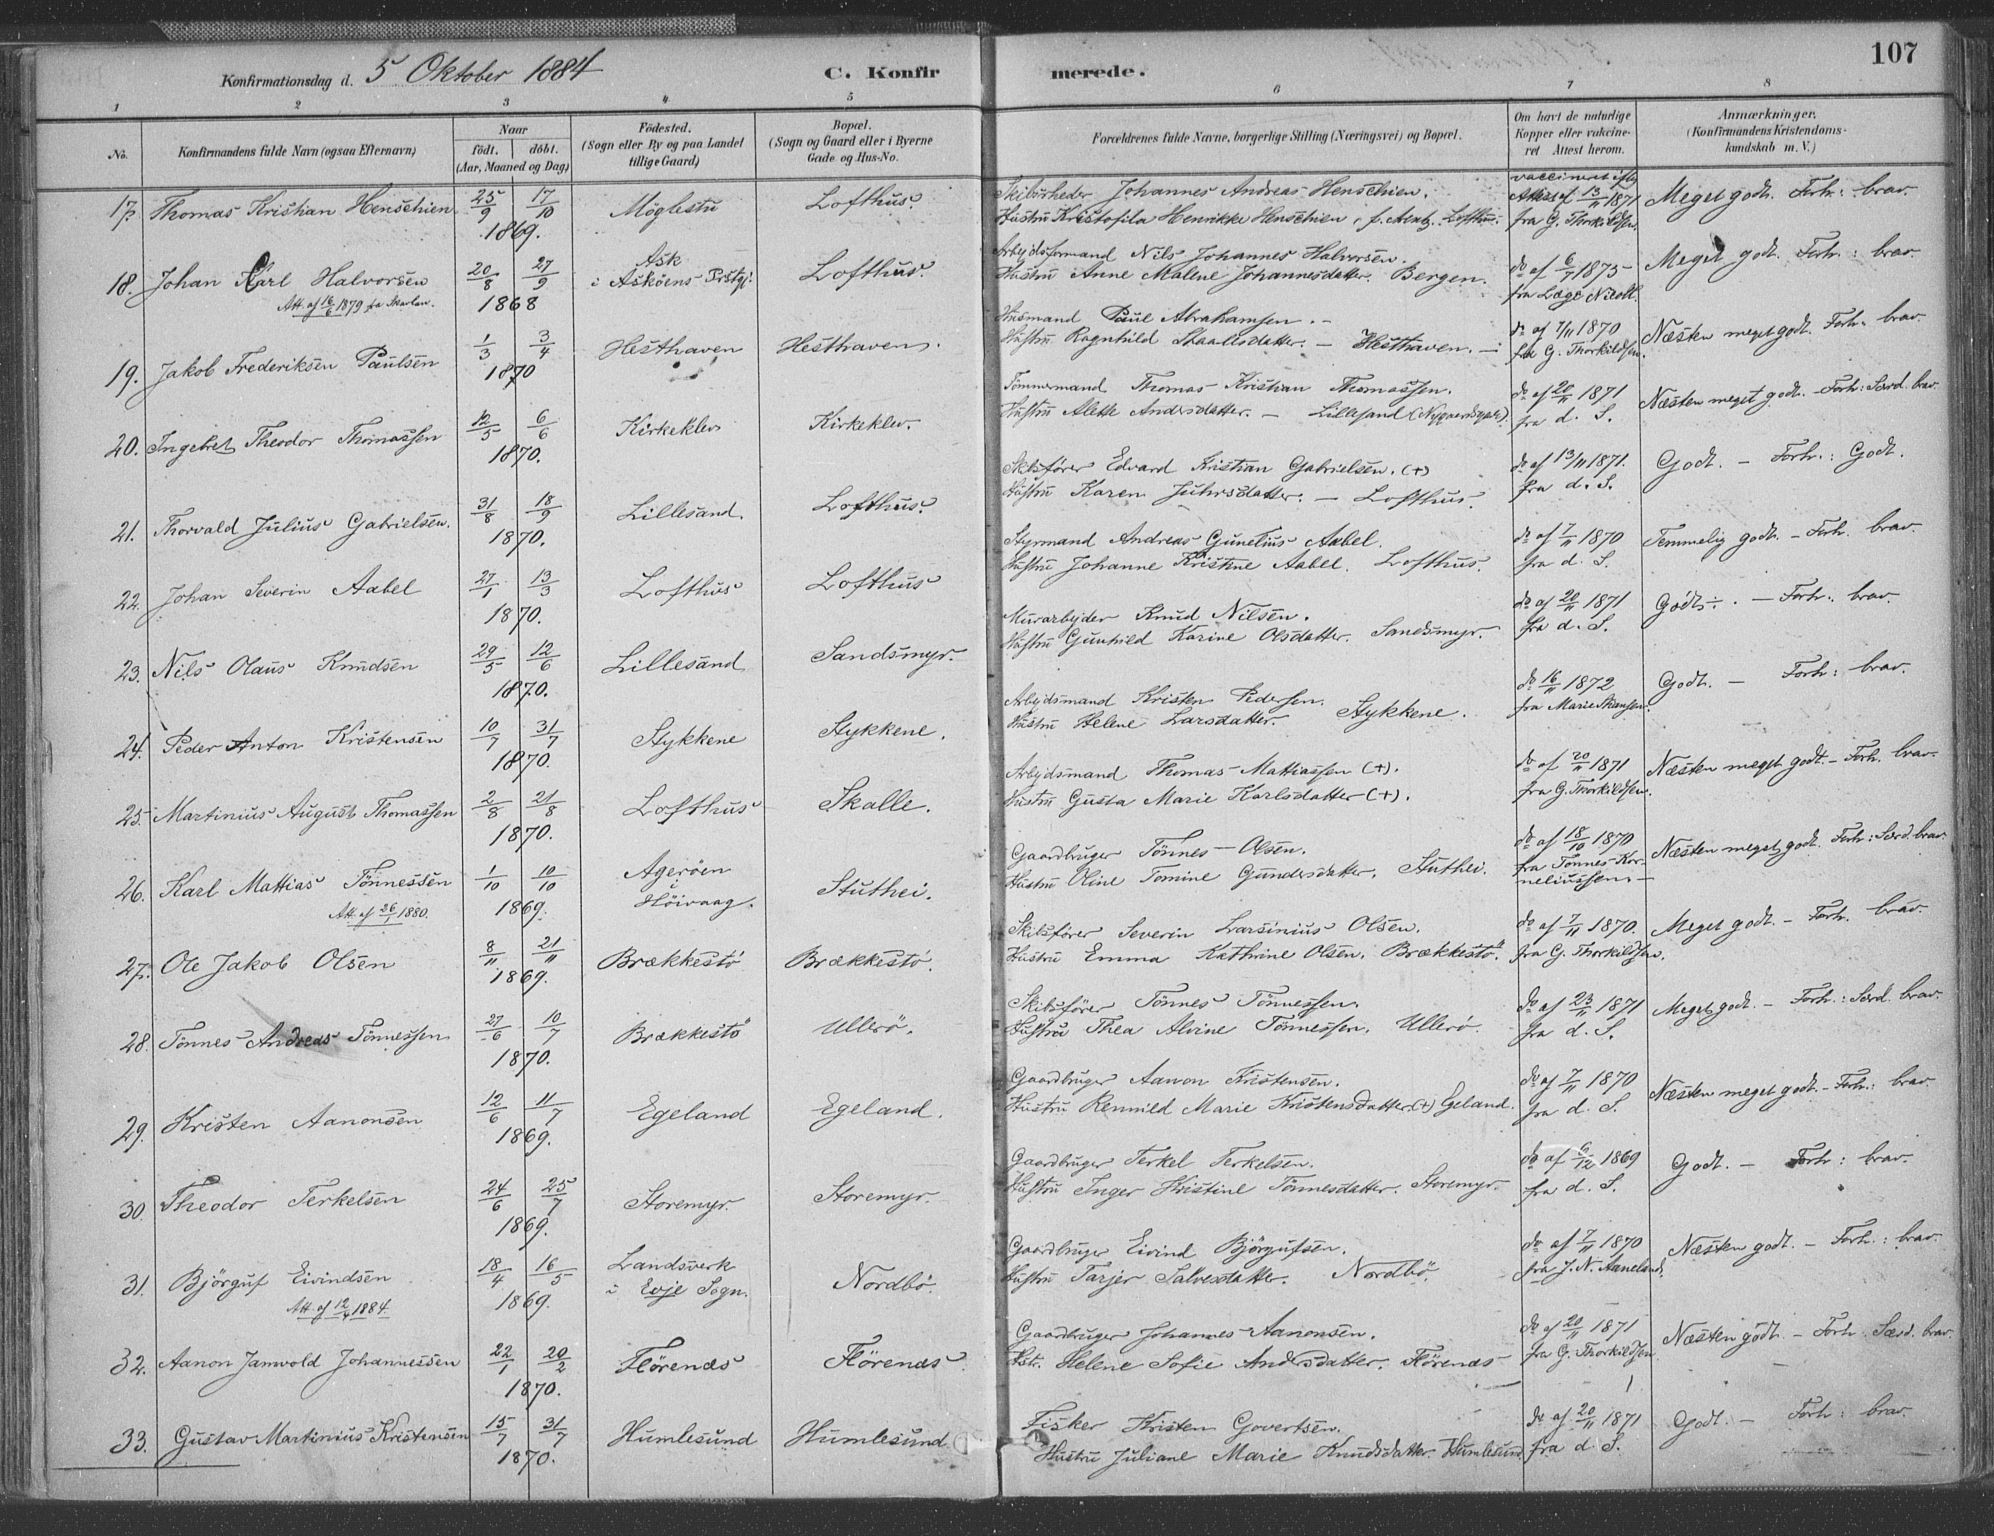 Konfirmationsdag d. 5 Oktober 1884
C. Konfir merede.
107
1 2 3 4 5 6 7 8
No.
Konfirmandens fulde Navn (ogsaa Efternavn)
Naar
födt. döbt.
(Aar, Maaned og Dag)
Födested.
(Sogn eller By og paa Landet
tillige Gaard)
Bopæl.
(Sogn og Gaard eller i Byerne
Gade og Hus-No.
Forældrenes fulde Navne, borgerlige Stilling (Næringsvei) og Bopæl.
Om havt de naturlige
Kopper eller vakcine-
ret Attest herom.
Anmærkninger.
(Konfirmandens Kristendoms-
kundskab m. V.)
17. Thomas Kristian Henschien 25/9 17/10 1869. Møglestu Lofthus
Skibsrheder Johannes Andreas Henschien.
Hustru Kristofila Henrikke Henschien, f. Lofthus.
vaccinert efter
Attest af 13/11 1871
fra G. Thorkildsen.
Meget godt. Forh: brav.
18. Johan Karl Halvorsen 20/8 27/9 1868 Ask
i Askøens Prstgj. Lofthus
Att. af 16/6 1879 fra
Arbejdsformand Nils Johannes Halvorsen.
Hustru Anne Malene Johannesdatter. Bergen.
do af 6/7 1875
fra Læge
Meget godt. Forh: brav.
19. Jakob Frederiksen Paulsen 1/3 3/4 1870 Hesthaven Hesthaven.
Husmand Paul Abrahamsen. -
Hustru Ragnhild Staalesdatter. - Hesthaven. -
do af 7/11 1870
fra G. Thorkildsen.
Næsten meget godt. Forh: brav.
20. Ingebret Theodor Thomassen 12/5 6/6 1870. Kirkeklev Kirkeklev.
Tømmermand Thomas Kristian Thomassen.
Hustru Alette Andrsdatter. - Lillesand
do af 20/11 1871
fra d. S.
Næsten meget godt. - Forh: Særd. brav.
21. Thorvald Julius Gabrielsen. 31/8 18/9 1870. Lillesand. Lofthus.
Skibsfører Edvard Kristian Gabrielsen. (+)
Hustru Karen Juhrsdatter. - Lofthus.
do af 13/11 1871.
fra d. S.
Godt. - Forh: Godt.
22. Johan Severin Aabel 27/1 13/3 1870. Lofthus Lofthus
Styrmand Andreas Gunelius Aabel.
Hustru Johanne Kristine Aabel. Lofthus.
do af 7/11 1870
fra d. S.
Temmelig godt. - Forh. brav.
23. Nils Olaus Knudsen 29/5 12/6 1870. Lillesand Sandsmyr.
Murarbejder Knud Nilsen.
Hustru Gunhild Karine Olsdatter. Sandsmyr.
do af 20/11 1871
fra d. S.
Godt ÷. - Forh: brav.
24. Peder Anton Kristensen 10/7 31/7 1870. Stykkene Stykkene.
Arbejdsmand Kristen Pedersen.
Hustru Helene Larsdatter. Stykkene.
do 16/11 1872
fra Marie
Godt. - Forh: brav.
25. Martinius August Thomassen 2/8 21/8 1870. Lofthus Skalle.
Arbejdsmand Thomas Mattiassen (+).
Hustru Gusta Marie Karlsdatter (+).
do af 20/11 1871
fra G. Thorkildsen.
Næsten meget godt. - Forh. brav.
26. Karl Mattias Tönnessen 1/10 10/10 1869. Agerøen
i
Høivaag. Stuthei.
Att. af 26/1 1880.
Gaardbruger Tönnes Olsen.
Hustru Oline Tomine Gundersdatter. Stuthei.
do af 18/10 1870
fra Tönnes Kor-
neliussen. -
Næsten meget godt. Forh: Særd. brav.
27. Ole Jakob Olsen 8/11 21/11 1869. Brækkestö Brækkestö.
Skibsfører Severin Larsinius Olsen.
Hustru Emma Kathrine Olsen. Brækkestö.
do af 7/11 1870.
fra G. Thorkildsen.
Meget godt. - Forh. brav.
28. Tönnes Andreas Tönnessen 27/6 10/7 1870. Brækkestö Ullerö.
Skibsfører Tönnes Tönnessen.
Hustru Thea Alvine Tönnessen. Ullerö.
do af 23/11 1871
fra d. S.
Meget godt. - Forh: Særd. brav.
29. Kristen Aanonsen 12/6 11/7 1869. Egeland Egeland.
Gaardbruger Aanon Kristensen.
Hustru Renmild Marie Kristensdatter. (+) Egeland.
do af 7/11 1870
fra d. S.
Næsten meget godt. - Forh: brav.
30. Theodor Terkelsen 24/6 25/7 1869. Storemyr. Storemyr.
Gaardbruger Terkel Terkelsen.
Hustru Inger Kristine Tönnesdatter. Storemyr.
do af 6/12 1869
fra d. S.
Godt. - Forh: brav.
31. Björguf Eivindsen 18/4 16/5 1869. Landsverk
i Evje Sogn. Nordbö.
Att. af 12/4 1884.
Gaardbruger Eivind Björgufsen.
Hustru Tarjer Salvesdatter. Nordbö.
do af 7/11 1870
fra J. N. Aaneland.
Næsten godt. - Forh: brav.
32. Aanon Janvold Johannessen 22/1 20/2 1870. Flörenæs Flörenæs
Gaardbruger Johannes Aanonsen.
Hstr. Helene Sofie Andersdatter. Flörenæs
do af 20/11 1871
fra G. Thorkildsen
Næsten godt. - Forh: Særd. brav.
33. Gustav Martinius Kristensen 15/7 31/7 1870. Humlesund Humlesund
Fisker Kristen Govertsen.
Hustru Juliane Marie Knudsdatter. Humlesund
do af 20/11 1871
fra d. S.
Godt. - Forh: brav.